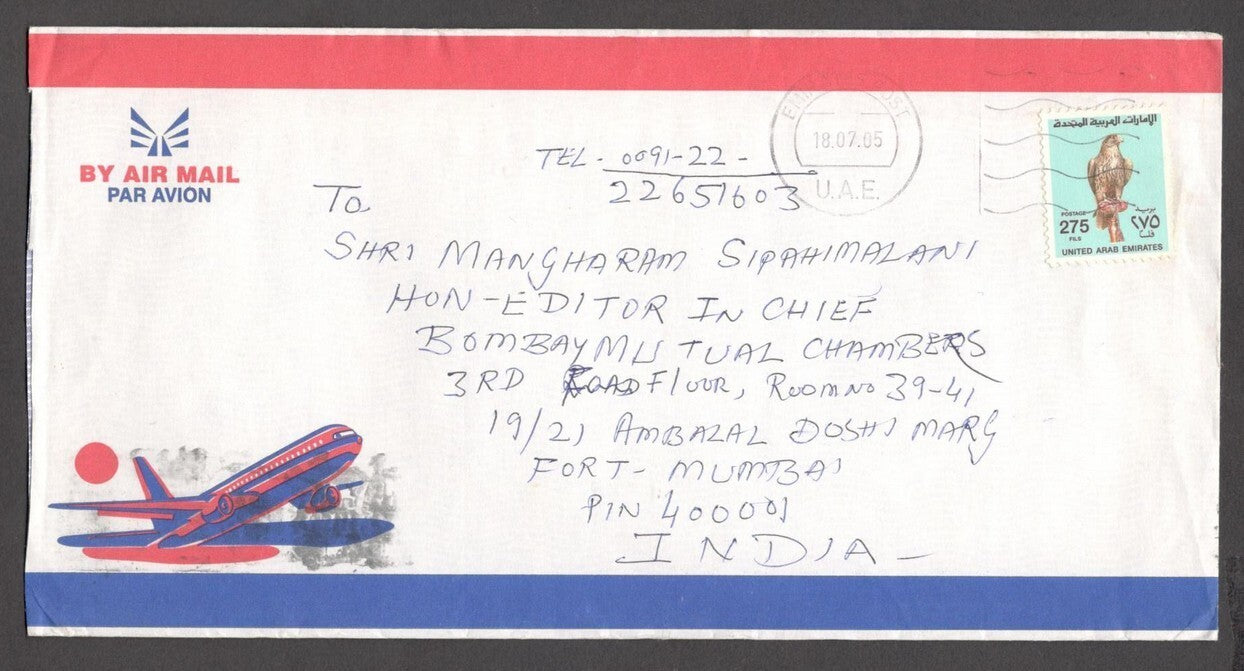 BY AIR MAIL
PAR AVION
EMIRATES POST
18.07.05
U.A.E.
الإمارات العربية المتحدة
POSTAGE بريد
275 ٢٧٥
FILS فلساً
UNITED ARAB EMIRATES
TEL - 0091-22 -
22651603
To
SHRI MANGHARAM SIPAHIMALANI
HON-EDITOR IN CHIEF
BOMBAY MUTUAL CHAMBERS
3RD FLOOR, ROOM NO 39-41
19/21 AMBALAL DOSHI MARG
FORT - MUMBAI
PIN 400001
INDIA -